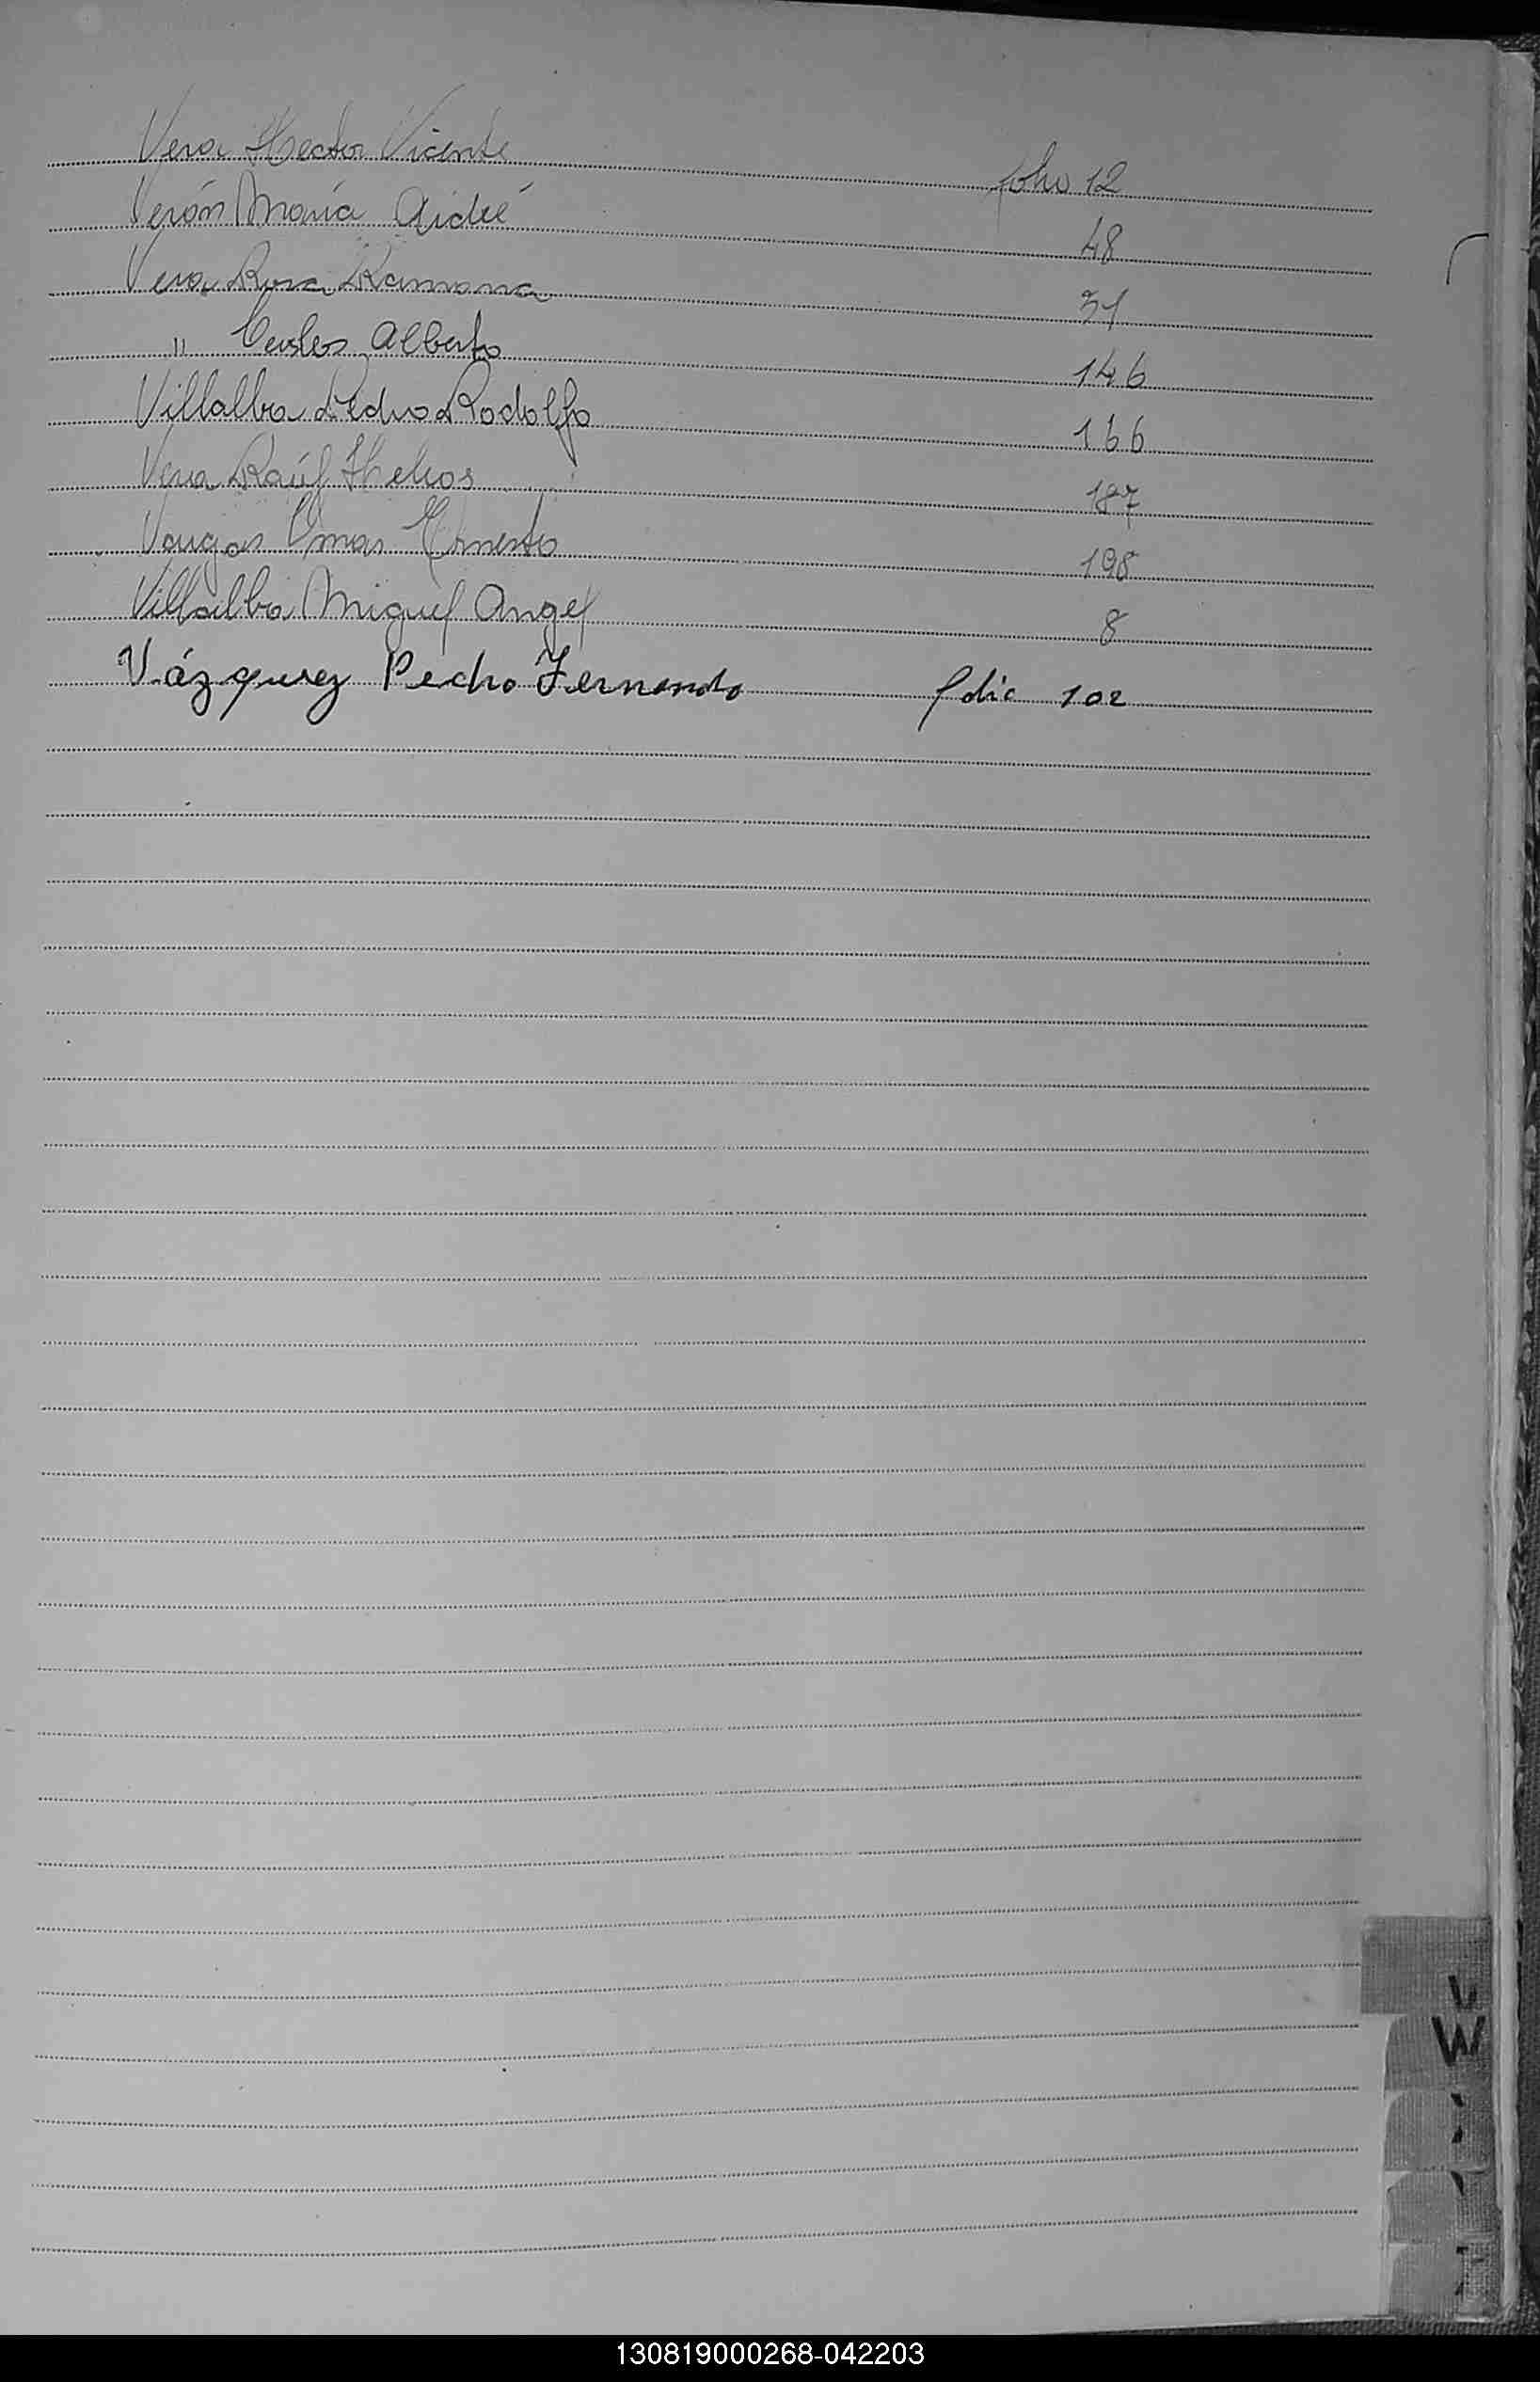 Vera Hector Vicente folio 12
Verón María Aideé 48
Vera Rosa Ramona 51
" Carlos Alberto 146
Villalba Pedro Rodolfo 166
Vera Raúl Helios 187
Vargas Omar Ernesto 198
Villalba Miguel Angel 8
Vázquez Pedro Fernando folio 102
V
W
130819000268-042203